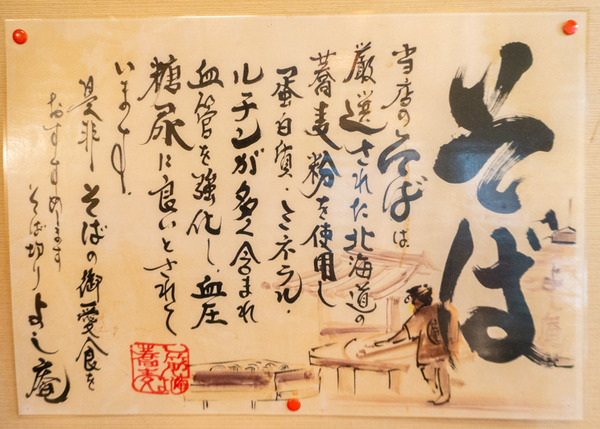 そば
当店のそばは
厳選された北海道の
蕎麦粉を使用し
蛋白質・ミネラル・
ルチンが多く含まれ
血管を強化し、血圧
糖尿に良いとされて
います。
是非そばの御愛食を
おすすめします
そば切りよし庵